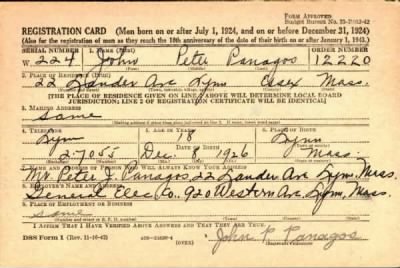 FORM APPROVED
REGISTRATION CARD (Men born on or after July 1, 1924, and on or before December 31, 1924)
(Also for the registration of men as they reach the 18th anniversary of the date of their birth on or after January 1, 1943.)
SERIAL NUMBER 1. NAME (Print) ORDER NUMBER
W. 224 John Peter Panagos 12220
(First) (Middle) (Last)
2. PLACE OF RESIDENCE (Print)
22 Lander Ave Lynn Essex Mass.
[THE PLACE OF RESIDENCE GIVEN ON LINE 2 ABOVE WILL DETERMINE LOCAL BOARD
JURISDICTION; LINE 2 OF REGISTRATION CERTIFICATE WILL BE IDENTICAL]
3. MAILING ADDRESS
Same
4. TELEPHONE 5. AGE IN YEARS 6. PLACE OF BIRTH
Lynn 18 Lynn
DATE OF BIRTH
2-7055 Dec. 1926 Mass.
7. NAME AND ADDRESS OF PERSON WHO WILL ALWAYS KNOW YOUR ADDRESS
Mr. Peter J. Panagos, 22 Lander Ave Lynn, Mass.
8. EMPLOYER'S NAME AND ADDRESS
General Elec Co. 920 Western Ave Lynn, Mass.
9. PLACE OF EMPLOYMENT OR BUSINESS
same
I AFFIRM THAT I HAVE VERIFIED ABOVE ANSWERS AND THAT THEY ARE TRUE.
DSS Form 1 (Rev. 11-16-42) (OVER)
John P. Panagos